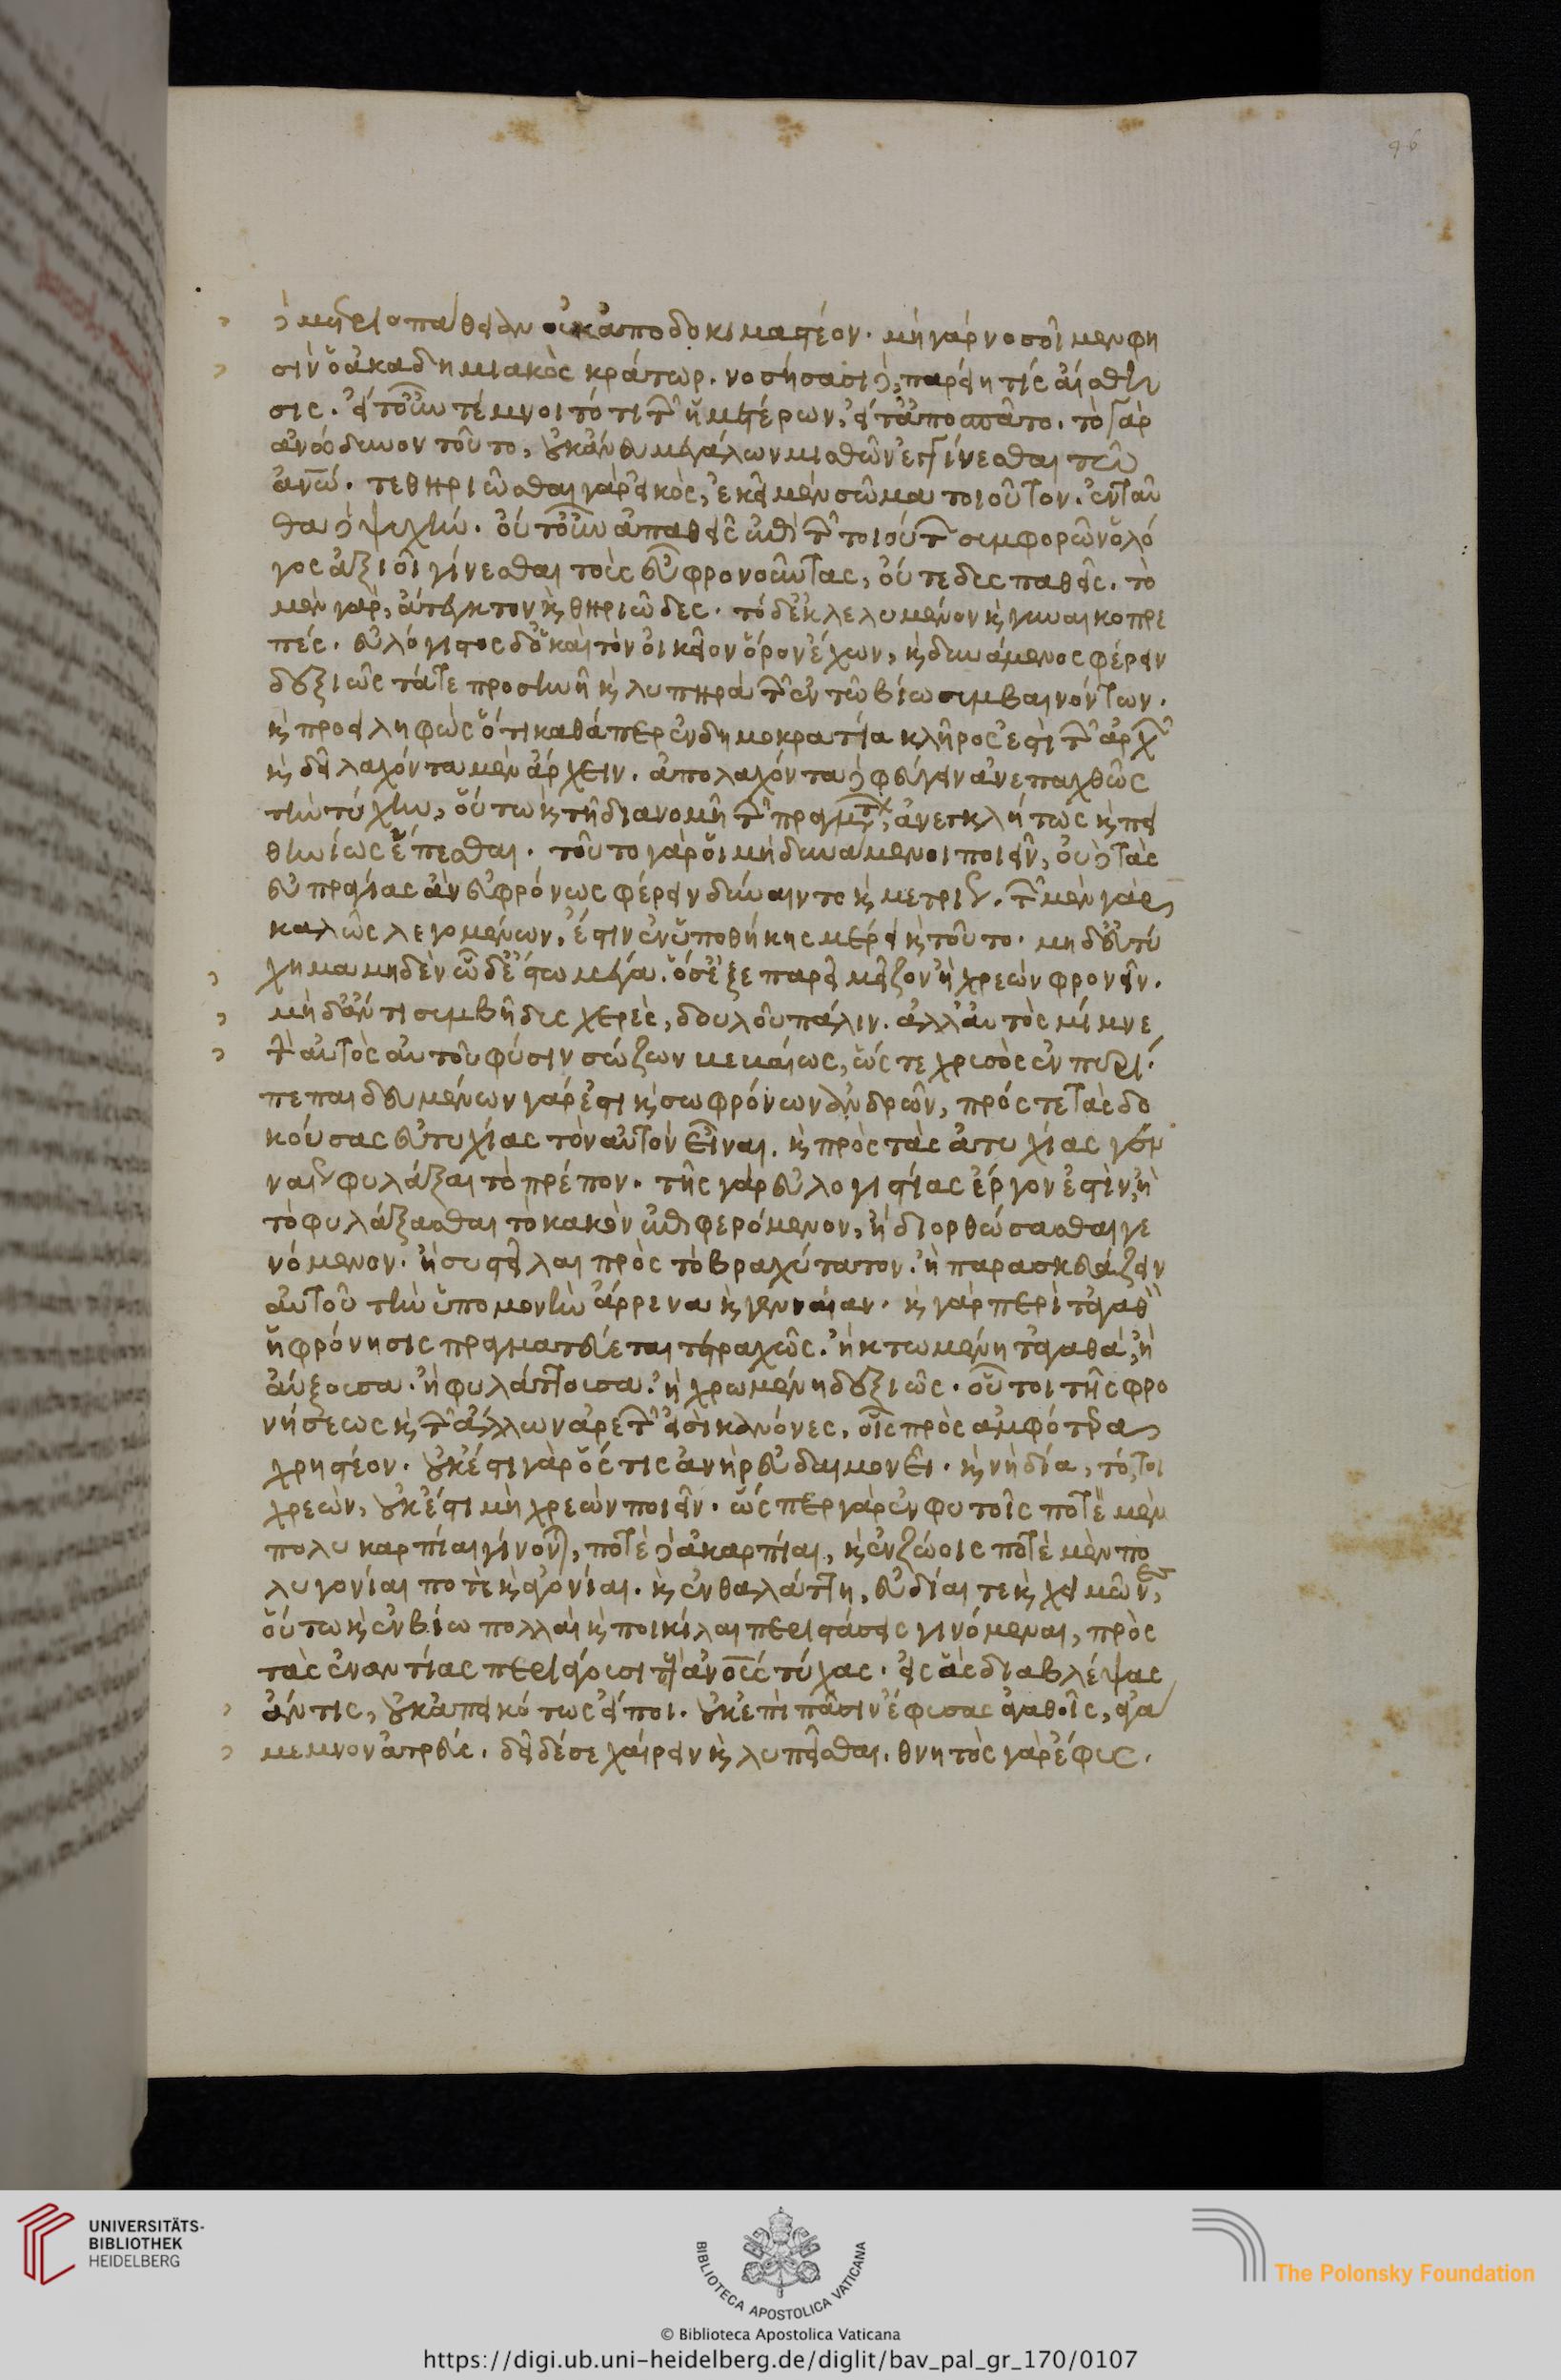 δὲ μετριοπάθειαν οὐκ ἀποδοκιμαστέον. μὴ γὰρ νοσοῖμεν φη
σὶν ὁ ἀκαδημιακὸς κράτωρ. νοσήσασι δὲ, παρείη τίς αἴσθη
σις. εἴτ οὖν τέμνοιτό τι τῶν ἡμετέρων, εἴτ ἀποσπᾶτο. τὸ γὰρ
ἀνώδυνον τοῦτο, οὐκ ἄνευ μεγάλων μισθῶν ἐγγίνεσθαι τῶ
ἀνω. τεθηριῶσθαι γὰρ εἰκὸς, ἐκεῖ μὲν σῶμα τοιοῦτον. ἐνταῦ
θα δὲ ψυχήν. οὔτ οὖν ἀπαθεῖς ἐπὶ τῶν τοιούτων συμφορῶν ὁ λό
γος ἀξιοῖ γίνεσθαι τοὺς εὐφρονοῦντας, οὔτε δυσπαθεῖς. τὸ
μὲν γὰρ, ἄτεγκτον καὶ θηριῶδες. τὸ δὲ ἐκλελυμένον καὶ γυναικοπρε
πές. εὐλόγιστος δ' ὁ καὶ τὸν οἰκεῖον ὅρον ἔχων, καὶ δυνάμενος φέρειν
δεξιῶς τά τε προσηνῆ καὶ λυπηρὰ τῶν ἐν τῶ βίω συμβαινόντων.
καὶ προειληφὼς ὅτι καθάπερ ἐν δημοκρατία κλῆρος ἐστὶ τῶν ἀρχῶν
καὶ δεῖ λαχόντα μὲν ἄρχειν. ἀπολαχόντα δὲ φεύγειν ἀνεπαχθῶς
τὴν τύχην, οὕτω καὶ τῆ διανομῆ τῶν πραγμάτων, ἀνεγκλήτως καὶ πει
θηνίως ἕπεσθαι. τοῦτο γὰρ οἱ μὴ δυνάμενοι ποιεῖν, οὐδὲ τὰς
εὐπραγίας ἂν εὐφρόνως φέρειν δύναιντο καὶ μετρίως. τῶν μὲν γὰρ
καλῶς λεγομένων, ἐστιν ἐν ὑποθήκης μέρει καὶ τοῦτο. μηδ' εὐτύ
χημα μηδὲν ὧδ' ἔστω μέγα. ὅς ἐξεπαρεῖ μεῖζον ἢ χρεὼν φρονεῖν.
μὴ δ' ἄν τι συμβῆ δυσχερὲς, δουλοῦ πάλιν. ἀλλ' αὐτὸς μίμνε
τὴν αὐτὸς αὐτοῦ φύσιν σώζων βεβαίως, ὥς τε χρυσὸς ἐν πυρί.
πεπαιδευμένων γάρ ἐστι καὶ σωφρόνων ἀνδρῶν, πρός τε τὰς δο
κούσας εὐτυχίας τὸν αὐτὸν εἶναι. καὶ πρὸς τὰς ἀτυχίας γεν
ναίως φυλάξαι τὸ πρέπον. τῆς γὰρ εὐλογιστίας ἔργον ἐστὶν, ἢ
τὸ φυλάξασθαι τὸ κακὸν ἐπιφερόμενον, ἢ διορθώσασθαι γε
νόμενον. ἢ συστεῖλαι πρὸς τὸ βραχύτατον. ἢ παρασκευάζειν
αὐτοῦ τὴν ὑπομονὴν ἄρρενα καὶ γενναίαν. καὶ γὰρ περὶ τἀγαθὸν
ἡ φρόνησις πραγματεύεται τετραχῶς. ἢ κτωμένη τἀγαθά, ἢ
αὔξουσα. ἢ φυλάττουσα. ἢ χρωμένη δεξιῶς. οὗτοι τῆς φρο
νήσεως καὶ τῶν ἄλλων ἀρετῶν εἰσὶ κανόνες, οἷς πρὸς ἀμφότερα
χρηστέον. οὐκ ἔστι γὰρ ὅς τις ἀνὴρ εὐδαιμονεῖ. καὶ νὴ δία, τό τοι
χρεὼν, οὐκ ἔστι μὴ χρεὼν ποιεῖν. ὥς περ γὰρ ἐν φυτοῖς ποτὲ μὲν
πολυκαρπίαι γίνονται, ποτὲ δὲ ἀκαρπίαι, καὶ ἐν ζώοις ποτὲ μὲν πο
λυγονίαι ποτὲ καὶ ἀγονίαι. καὶ ἐν θαλάττη, εὐδίαι τε καὶ χειμῶνες,
οὕτω καὶ ἐν βίω πολλαὶ καὶ ποικίλαι περιστάσεις γινόμεναι, πρὸς
τὰς ἐναντίας περιάγουσι τῶν ἀνους τύχας. εἰς ἃς διαβλέψας
ἄν τις, οὐκ ἀπεικότως εἴποι. οὐκ ἐπὶ πᾶσιν ἔφυσας ἀγαθοῖς, ἀγά
μεμνον ἀτρεύς. δεῖ δέ σε χαίρειν καὶ λυπεῖσθαι. θνητὸς γὰρ ἔφυς.
96
UNIVERSITÄTS-
BIBLIOTHEK
HEIDELBERG
BIBLIOTECA APOSTOLICA VATICANA
The Polonsky Foundation
© Biblioteca Apostolica Vaticana
https://digi.ub.uni-heidelberg.de/diglit/bav_pal_gr_170/0107